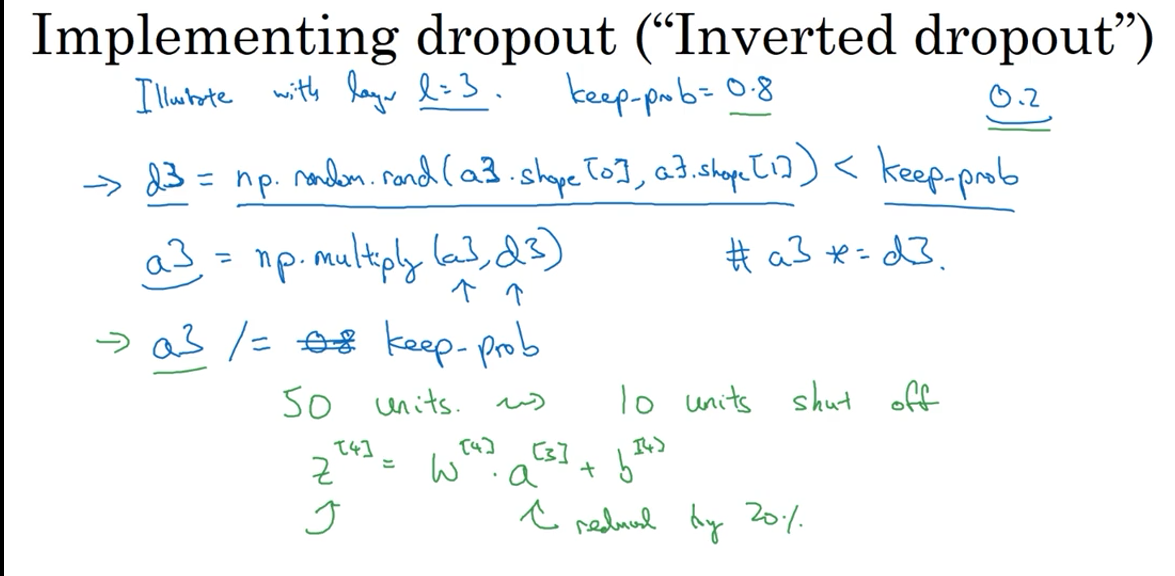 Implementing dropout (“Inverted dropout”)
Illustrate with layer l=3. keep-prob= 0.8 0.2
→ d3 = np.random.rand(a3.shape[0], a3.shape[1]) < keep-prob
a3 = np.multiply(a3, d3) # a3 *= d3.
↑ ↑
→ a3 /= 0.8 keep-prob
50 units. ⇝ 10 units shut off
z^[4] = W^[4] · a^[3] + b^[4]
reduced by 20%.